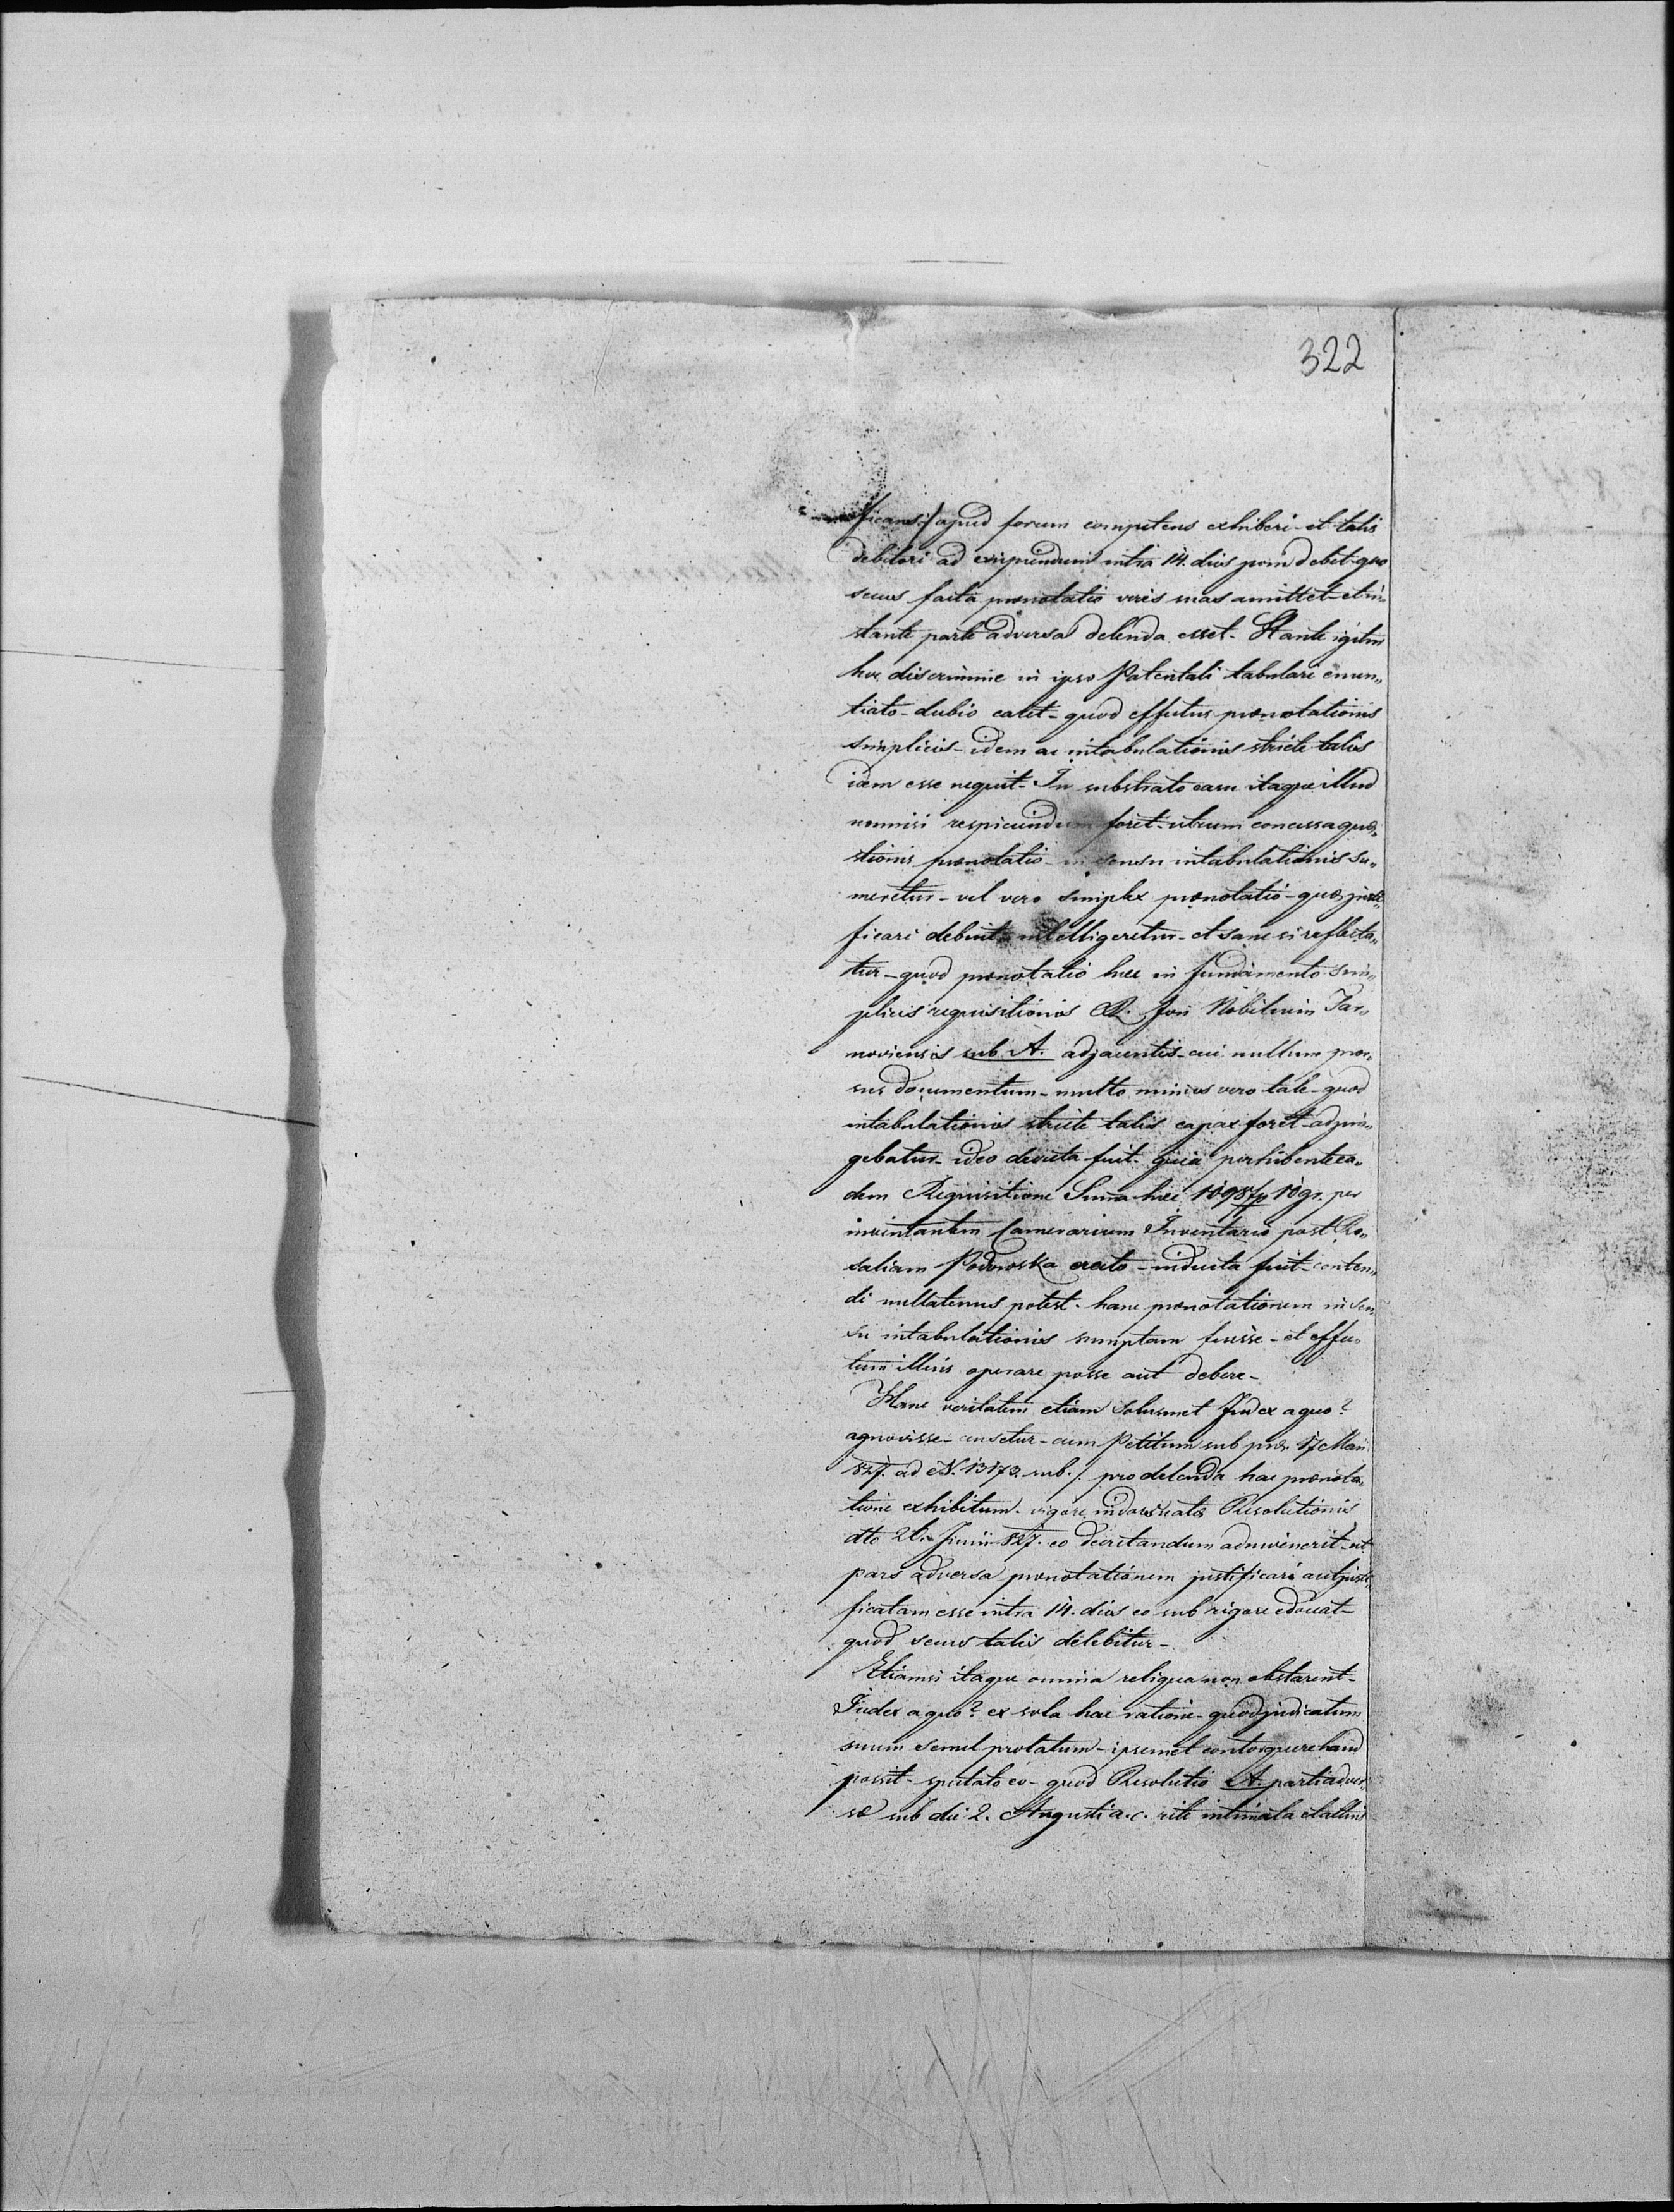 322
ficans:/ apud forum competens exhiberi - et talis
debitori ad excipiendum intra 14. dies poni debet - quo
secus facta prænotatio vires suas amittet - et in„
stante parte adversa delenda esset. Stante igitur
hoc discrimine in ipso Patentali tabulari enun„
tiato - dubio caret - quod effectus prænotationis
simplicis - idem ac intabulationis stricte talis
idem esse nequit. In substrato casu itaque illud
nonnisi respiciendum foret - utrum concessa quæ„
stionis prænotatio - in sensu intabulationis su„
meretur - vel vero simplex prænotatio - quæ justi„
ficari debuit - intelligeretur - et sane si reflecta„
tur - quod prænotatio hæc in fundamento sim„
plicis requisitionis C. R. Fori Nobilium Tar„
noviensis sub A. adjacentis - cui nullum pror„
sus documentum - multo minus vero tale - quod
intabulationis stricte talis capax foret - adjun„
gebatur - ideo decreta fuit. quia perhibente ea„
dem Requisitione Summa hæc 1098 fp 10 gr. per
inventantem Camerarium Inventario post Ro„
saliam Podowska erecto - inducta fuit - conten„
di nullatenus potest. hanc prænotationem in sen„
su intabulationis sumptam fuisse - et effec„
tum illius operare posse aut debere -
Hanc veritatem etiam solusmet Judex a quo?
agnovisse - censetur - cum Petitum sub præs. 17 Maii
827. ad N. 13173. sub ./. pro delenda hac prænota„
tione exhibitum. vigore indorsatæ Resolutionis
dto 26. Junii 827. eo decretandum adinvenerit - ut
pars adversa prænotationem justificari aut justi„
ficatam esse intra 14. dies eo sub rigore edoceat -
quod secus talis delebitur -
Etiamsi itaque omnia reliqua non obstarent -
Judex a quo? ex sola hac ratione - quod judicatum
suum semel prolatum - ipsemet contorquere haud
possit - spectato eo - quod Resolutio A. parti adver„
sæ sub die 2. Augusti a. c. rite intimata